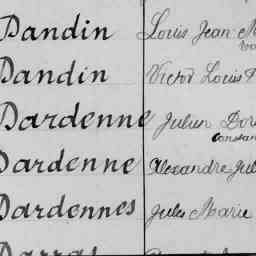 Dandin Louis Jean
Dandin Victor Louis
Dardenne Julien
Constan
Dardenne Alexandre Jul
Dardennes Jules Marie